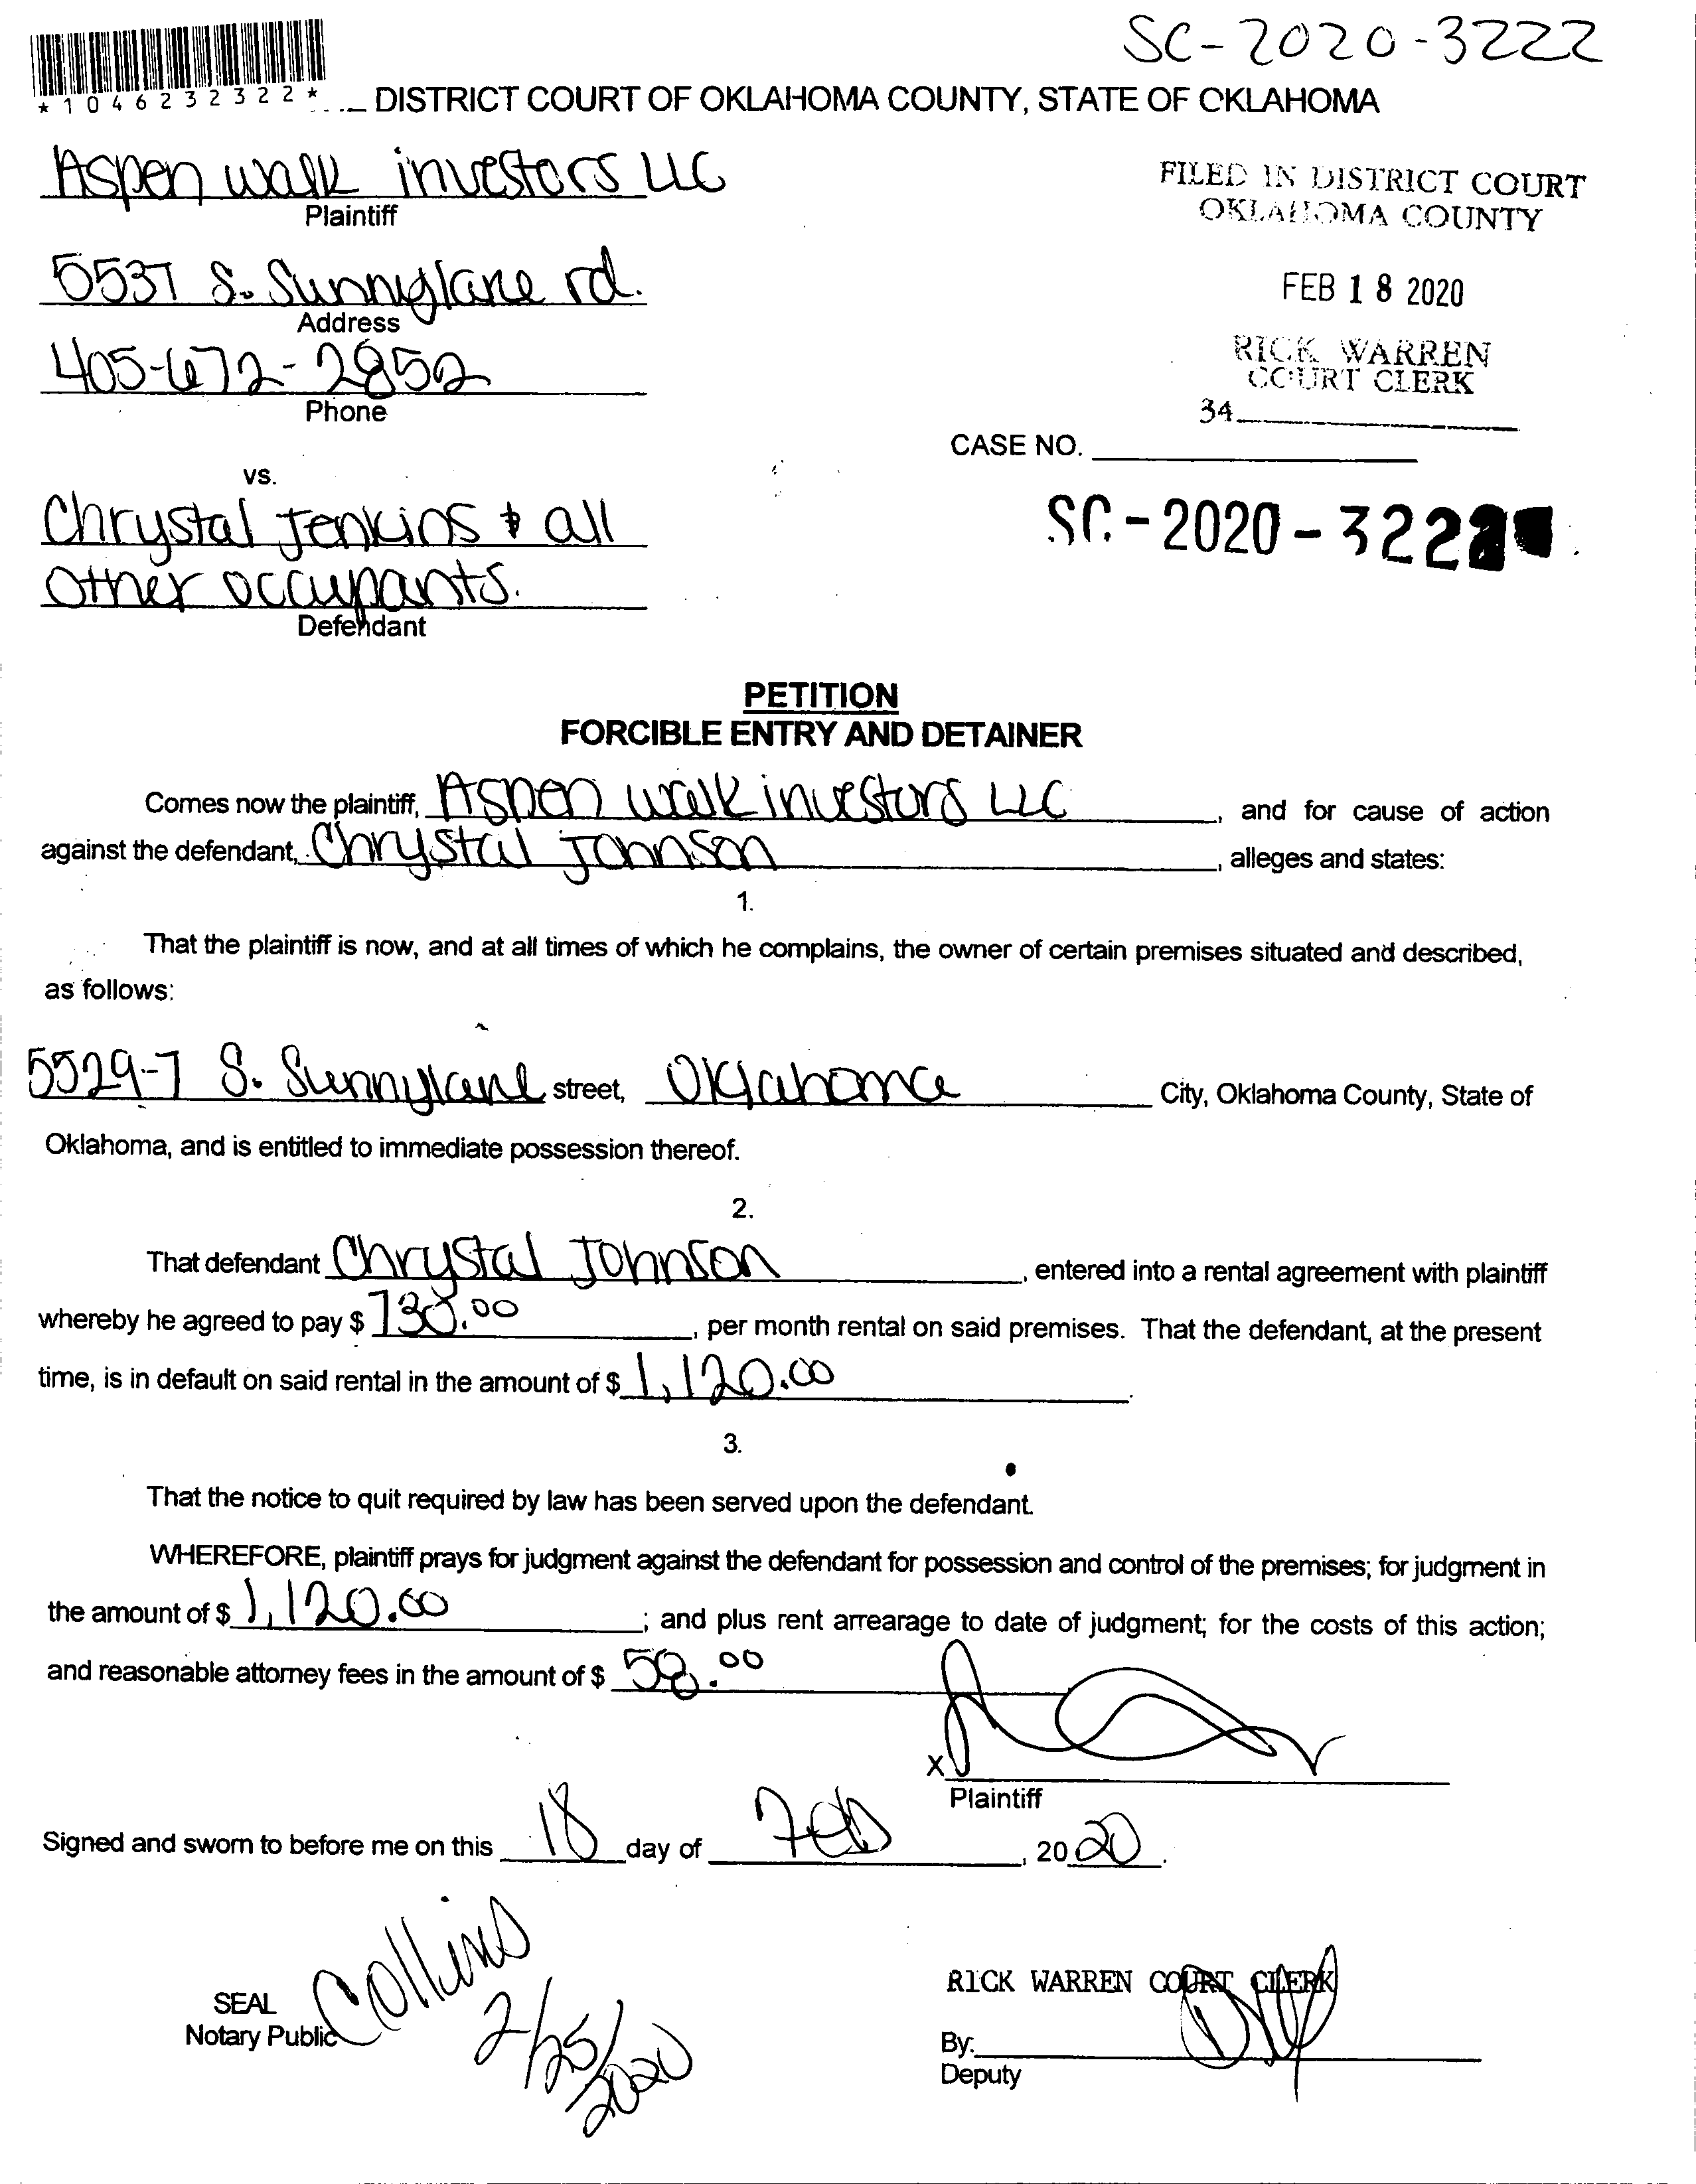 SC-2020-3222
*1046232322*
DISTRICT COURT OF OKLAHOMA COUNTY, STATE OF OKLAHOMA
Aspen walk investors LLC
Plaintiff
FILED IN DISTRICT COURT
OKLAHOMA COUNTY
5537 S. Sunnylane rd.
Address
FEB 18 2020
405-672-2852
Phone
RICK WARREN
COURT CLERK
34
CASE NO.
vs.
Chrystal Jenkins & all
other occupants.
Defendant
SC-2020-3222
PETITION
FORCIBLE ENTRY AND DETAINER
Comes now the plaintiff, Aspen walk investors LLC, and for cause of action
against the defendant, Chrystal Johnson, alleges and states:
1.
That the plaintiff is now, and at all times of which he complains, the owner of certain premises situated and described,
as follows:
5529-7 S. Sunnylane street, Oklahoma City, Oklahoma County, State of
Oklahoma, and is entitled to immediate possession thereof.
2.
That defendant Chrystal Johnson, entered into a rental agreement with plaintiff
whereby he agreed to pay $ .00, per month rental on said premises. That the defendant, at the present
time, is in default on said rental in the amount of $ 1,120.00.
3.
That the notice to quit required by law has been served upon the defendant.
WHEREFORE, plaintiff prays for judgment against the defendant for possession and control of the premises; for judgment in
the amount of $ 1,120.00; and plus rent arrearage to date of judgment; for the costs of this action;
and reasonable attorney fees in the amount of $ 58.00
X
Plaintiff
Signed and sworn to before me on this 18 day of Feb, 2020.
Collins
2/25/2020
SEAL
Notary Public
RICK WARREN COURT CLERK
By:
Deputy